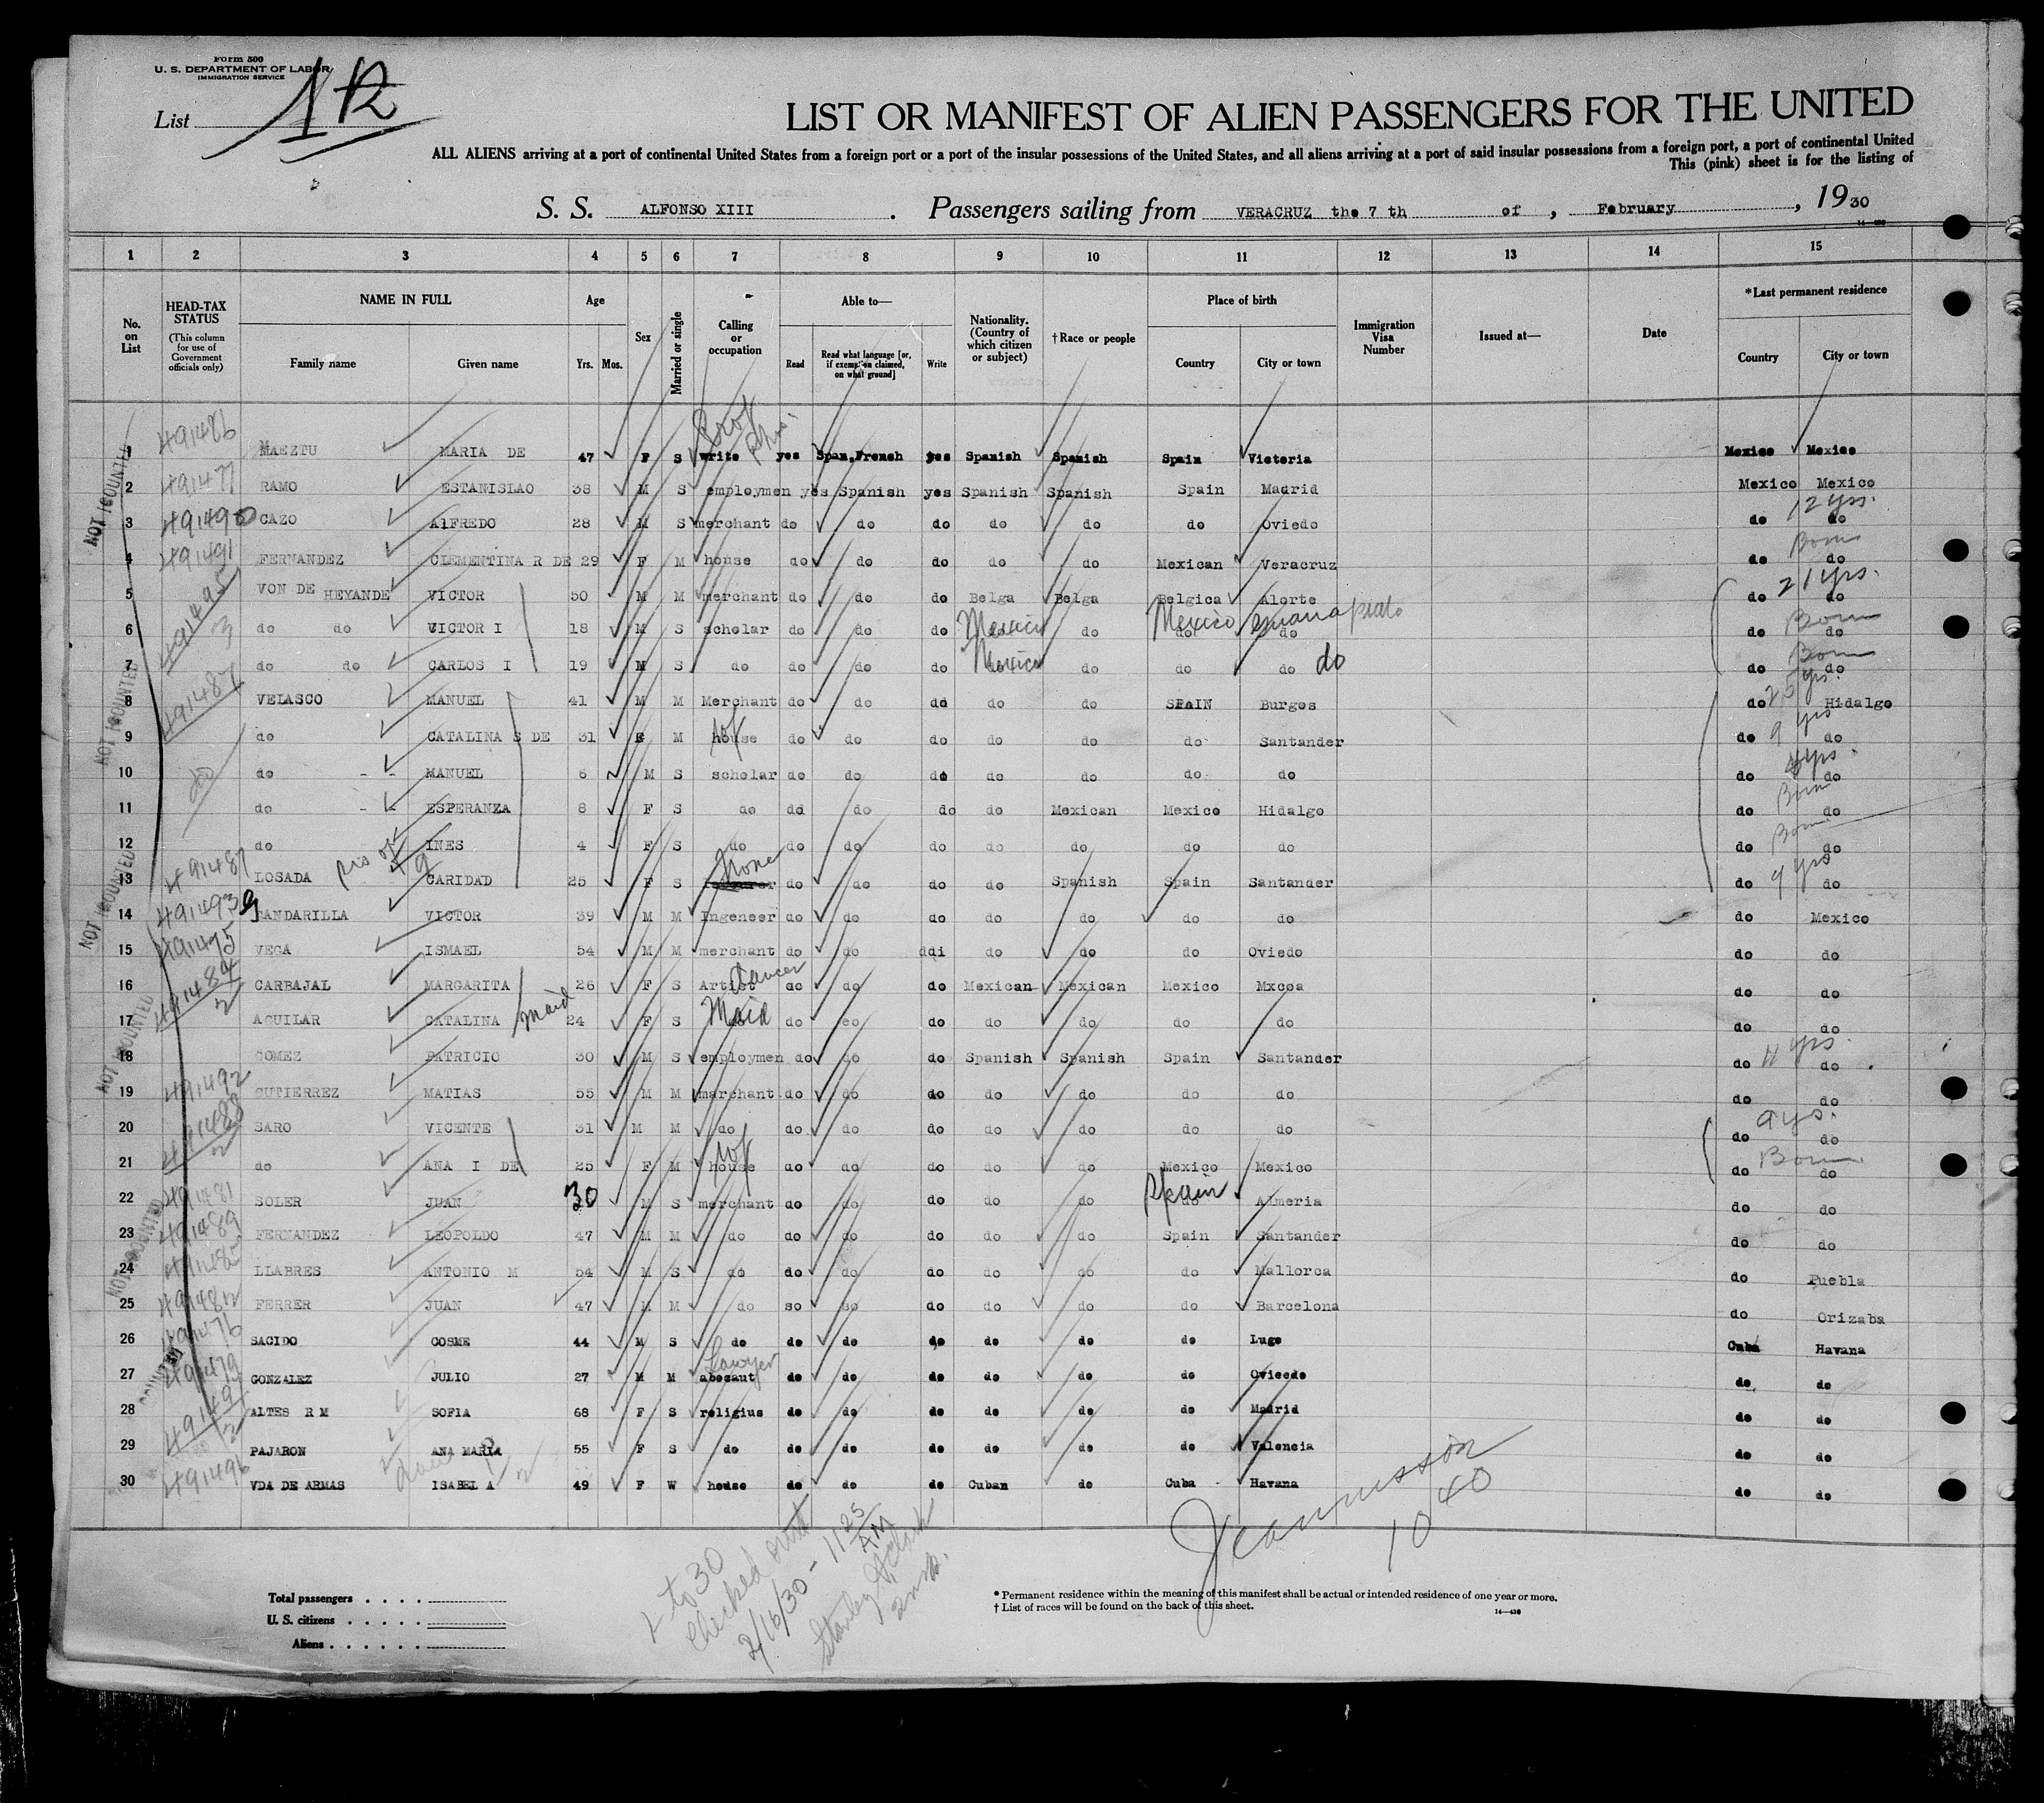 Form 500
U. S. DEPARTMENT OF LABOR
IMMIGRATION SERVICE
List 1 + 2
LIST OR MANIFEST OF ALIEN PASSENGERS FOR THE UNITED
ALL ALIENS arriving at a port of continental United States from a foreign port or a port of the insular possessions of the United States, and all aliens arriving at a port of said insular possessions from a foreign port, a port of continental United
This (pink) sheet is for the listing of
S. S. ALFONSO XIII . Passengers sailing from VERACRUZ the 7 th of , February , 19 30
1 2 3 4 5 6 7 8 9 10 11 12 13 14 15
No. on List
HEAD-TAX STATUS
(This column for use of Government officials only)
NAME IN FULL
Family name Given name
Age
Yrs. Mos.
Sex
Married or single
Calling or occupation
Able to—
Read Read what language [or, if exemption claimed, on what ground] Write
Nationality. (Country of which citizen or subject)
†Race or people
Place of birth
Country City or town
Immigration Visa Number
Issued at—
Date
*Last permanent residence
Country City or town
1 491486 MAEZTU MARIA DE 47 F S write yes Span,French yes Spanish Spanish Spain Victoria Mexico Mexico
2 491477 RAMO ESTANISLAO 38 M S employmen yes Spanish yes Spanish Spanish Spain Madrid Mexico Mexico
3 491490 CAZO AlFREDO 28 M S merchant do do do do do do Oviedo do 12 yrs. do
4 491491 FERNANDEZ CLEMENTINA R DE 29 F M house do do do do do Mexican Veracruz do Born do
5 491495 VON DE HEYANDE VICTOR 50 M M merchant do do do Belga Belga Belgica Alorte do 21 yrs. do
6 3 do do VICTOR I 18 M S scholar do do do Mexico do Mexico do do Born do
7 do do CARLOS I 19 M S do do do do Mexico do do do do do Born do
8 VELASCO MANUEL 41 M M Merchant do do do do do SPAIN Burgos do 25 yrs. Hidalgo
9 do CATALINA S DE 31 M wf house do do do do do do Santander do 9 yrs do
10 do do - - MANUEL 6 M S scholar do do do do do do do do yrs. do
11 do - - ESPERANZA 8 F S do do do do do Mexican Mexico Hidalgo do Born do
12 do INES 4 F S do do do do do do do do do Born do
13 491487 LOSADA CARIDAD 25 F S None do do do do Spanish Spain Santander do 4 yrs do
14 491493 GANDARILLA VICTOR 39 M M Ingeneer do do do do do do do do Mexico
15 VEGA ISMAEL 54 M M merchant do do ddi do do do Oviedo do do
16 CARBAJAL MARGARITA 26 F S Artist Dancer do do do Mexican Mexican Mexico Mxcoa do do
17 AGUILAR CATALINA maid 24 F S Maid do eo do do do do do do do
18 GOMEZ PATRICIO 30 M S employmen do do do Spanish Spanish Spain Santander do 4 yrs. do
19 491492 GUTIERREZ MATIAS 55 M M marchant do do do do do do do do do
20 SARO VICENTE 31 M M do do do do do do do do do 9 yrs. do
21 do ANA I DE 25 F M wf house do do do do do Mexico Mexico do Born do
22 SOLER JUAN 30 M S merchant do do do do do Spain Almeria do do
23 491489 FERNANDEZ LEOPOLDO 47 M M do do do do do do Spain Santander do do
24 LLABRES ANTONIO M 54 M S do do do do do do do Mallorca do Puebla
25 FERRER JUAN 47 M M do so so do do do do Barcelona do Orizaba
26 SACIDO COSME 44 M S do do do do do do do Lugo Cuba Havana
27 GONZALEZ JULIO 27 M M abocaut Lawyer do do do do do do Oviedo do do
28 ALTES R M SOFIA 68 F S religius do do do do do do Madrid do do
29 PAJARON ANA MARIA 55 F S do do do do do do do Valencia do do
30 491496 VDA DE ARMAS ISABEL A 49 F W house do do do Cuban do Cuba Havana do do
NOT COUNTED
1 to 30
Checked out
2/16/30 - 11 25 AM
Stanley
Insp.
10 40
Total passengers . . . .
U. S. citizens . . . . .
Aliens . . . . . .
* Permanent residence within the meaning of this manifest shall be actual or intended residence of one year or more.
† List of races will be found on the back of this sheet.
14—430